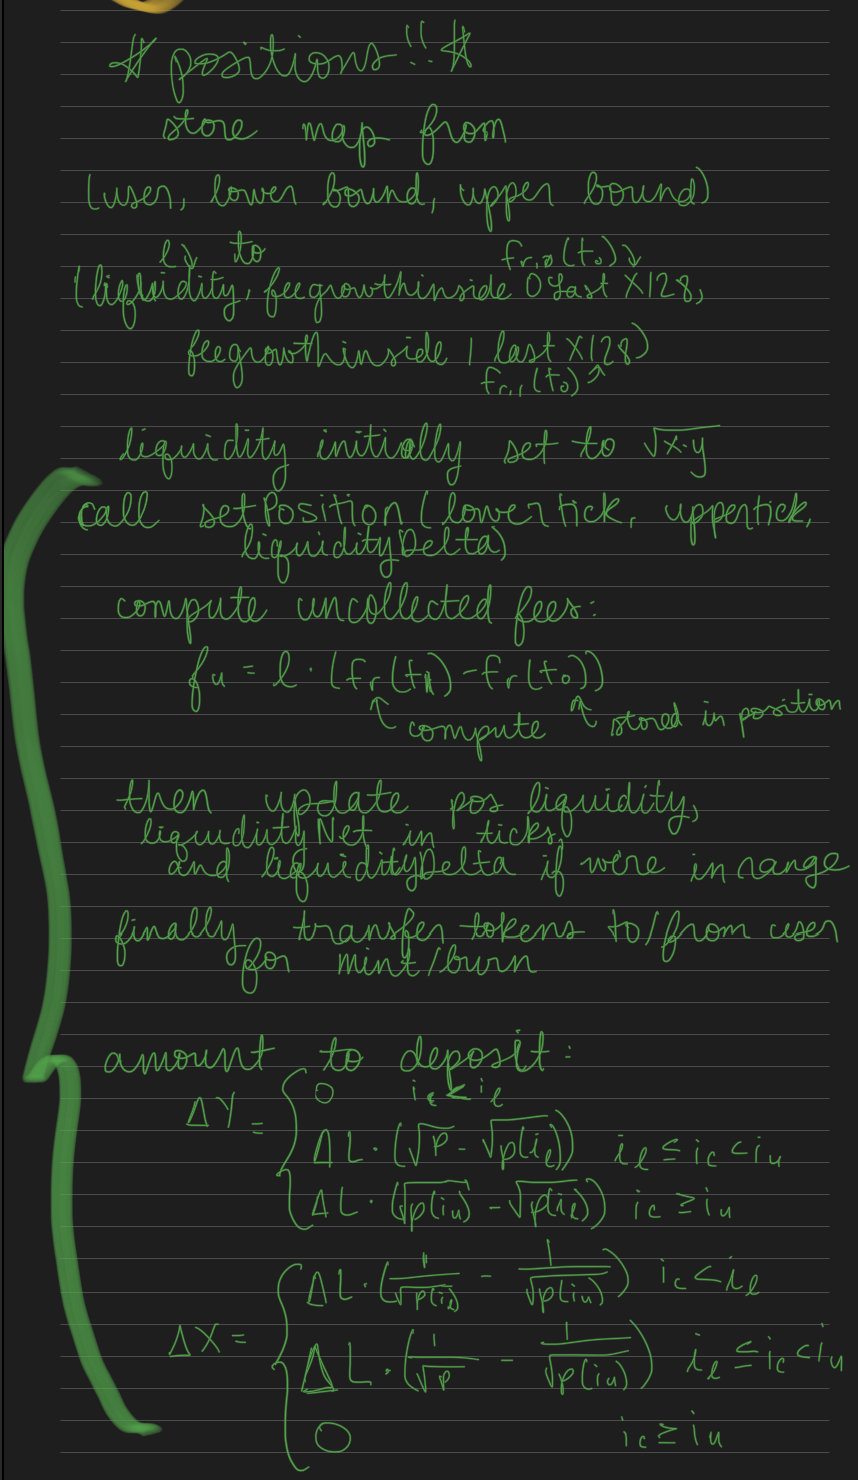 # positions!! #
store map from
(user, lower bound, upper bound)
l↓ to f_{r,0}(t_0)↓
(liquidity, feegrowthinside 0 last X128,
feegrowthinside 1 last X128)
f_{r,1}(t_0)↗
liquidity initially set to √x·y
call setPosition(lowertick, uppertick,
liquidityDelta)
compute uncollected fees:
f_u = l · (f_r(t_1) - f_r(t_0))
↑ compute ↑ stored in position
then update pos liquidity,
liquidityNet in ticks,
and liquidityDelta if we're in range
finally, transfer tokens to/from user
for mint/burn
amount to deposit:
ΔY = { 0 i_c < i_l
ΔL · (√P - √p(i_l)) i_l ≤ i_c < i_u
ΔL · (√p(i_u) - √p(i_l)) i_c ≥ i_u
ΔX = { ΔL · (1/√p(i_l) - 1/√p(i_u)) i_c < i_l
ΔL · (1/√P - 1/√p(i_u)) i_l ≤ i_c < i_u
0 i_c ≥ i_u